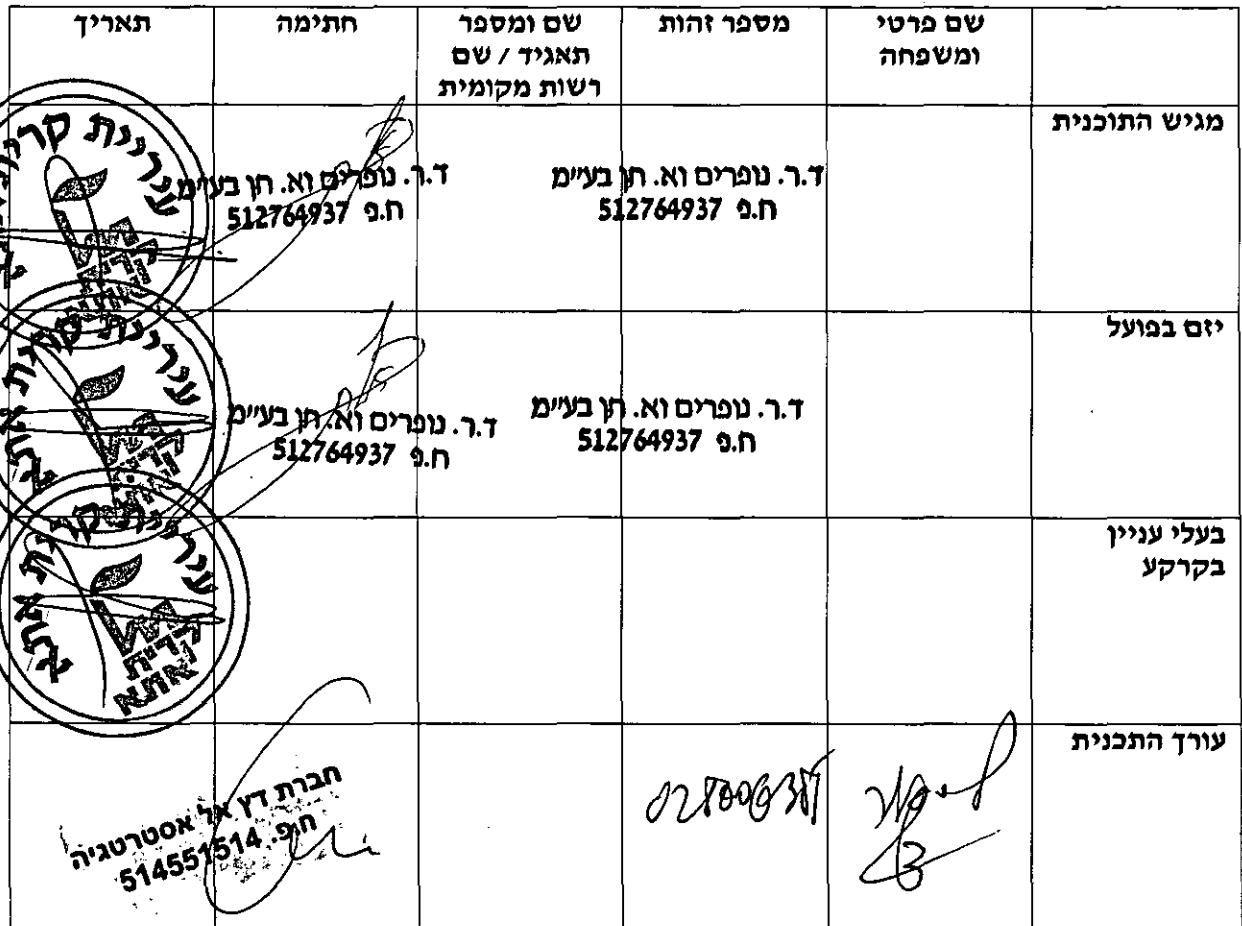 שם פרטי
ומשפחה
מספר זהות
שם ומספר
תאגיד / שם
רשות מקומית
חתימה
תאריך
מגיש התוכנית
ד.ר. נופרים וא. חן בע״מ
ח.פ 512764937
ד.ר. נופרים וא. חן בע״מ
ח.פ 512764937
עיריית קרית
קרית
יזם בפועל
ד.ר. נופרים וא. חן בע״מ
ח.פ 512764937
ד.ר. נופרים וא. חן בע״מ
ח.פ 512764937
עירית קרית אתא
קרית
בעלי עניין
בקרקע
עירית קרית אתא
קרית
אתא
עורך התכנית
חברת דץ אל אסטרטגיה
ח.פ. 514551514